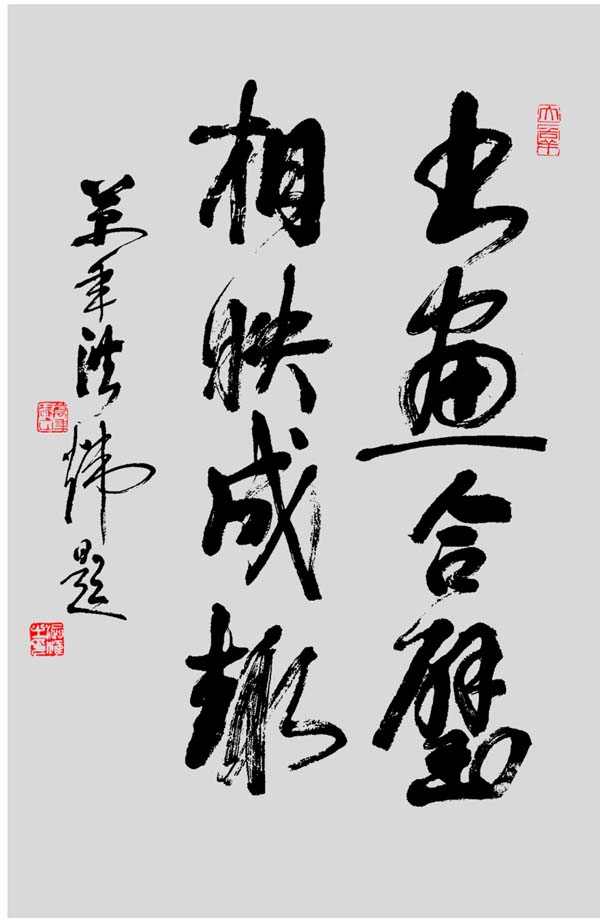 书画合璧
相映成趣
万年洪炜题